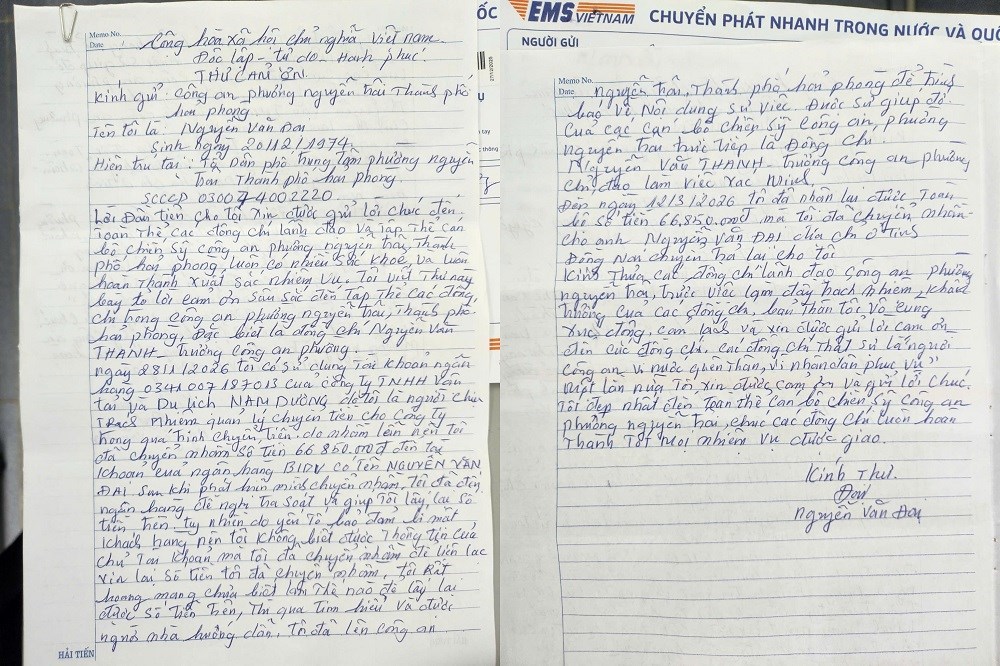 EMS VIETNAM CHUYỂN PHÁT NHANH TRONG NƯỚC VÀ QUỐ
NGƯỜI GỬI
ỐC
Memo No.
Date
Cộng hòa xã hội chủ nghĩa Việt nam
Độc lập - tự do - Hạnh phúc.
THƯ CẢM ƠN.
Kính gửi: Công an phường nguyễn trãi Thành phố
hải phòng.
Tên tôi là: Nguyễn Văn Đoi
Sinh ngày 20/12/1974
Hiện trú tại: Tổ Dân phố trung tâm phường nguyễn
trãi Thành phố hải phòng.
SCCCD 030074002220
Lời Đầu tiên cho tôi xin được gửi lời chúc đến
toàn thể các đồng chí lãnh đạo và tập thể cán
bộ chiến sỹ công an phường nguyễn trãi, Thành
phố hải phòng, luôn có nhiều sức khỏe, và luôn
hoàn thành xuất sắc nhiệm vụ. Tôi viết thư này
bày tỏ lời cảm ơn sâu sắc đến tập thể các đồng
chí trong công an phường nguyễn trãi, Thành phố
hải phòng, Đặc biệt là đồng chí Nguyễn Văn
THANH - trưởng công an phường.
ngày 28/1/2026 tôi có sử dụng Tài khoản ngân
hàng 0341007187013 của công ty TNHH Vận
tải và Du lịch NAM DƯƠNG do tôi là người chịu
trách nhiệm quản lý chuyển tiền cho công ty
trong quá trình chuyển tiền do nhầm lẫn nên tôi
đã chuyển nhầm số tiền 66.850.000đ đến tài
khoản của ngân hàng BIDV có tên NGUYỄN VĂN
ĐẠI Sau khi phát hiện mình chuyển nhầm, tôi đã đến
ngân hàng đề nghị tra soát và giúp tôi lấy lại số
tiền trên, tuy nhiên do yếu tố bảo đảm bí mật
khách hàng nên tôi không biết được thông tin của
chủ tài khoản mà tôi đã chuyển nhầm để liên lạc
xin lại số tiền tôi đã chuyển nhầm, tôi rất
hoang mang chưa biết làm thế nào để lấy lại
được số tiền trên, Thì qua tìm hiểu và được
người nhà hướng dẫn, tôi đã lên công an
HẢI TIẾN
Memo No.
Date
nguyễn trãi, Thành phố hải phòng để trình
báo về nội dung sự việc. Được sự giúp đỡ
của các cán bộ chiến sỹ công an, phường
nguyễn trãi trực tiếp là Đồng chí.
Nguyễn Văn THANH - trưởng công an phường
chỉ đạo làm việc xác minh.
Đến ngày 12/3/2026 tôi đã nhận lại được toàn
bộ số tiền 66.850.000đ mà tôi đã chuyển nhầm
cho anh Nguyễn Văn ĐẠI địa chỉ ở tỉnh
Đồng Nai chuyển trả lại cho tôi
Kính Thưa các đồng chí lãnh đạo công an phường
nguyễn trãi, trước việc làm đầy trách nhiệm, khẩn
trương của các đồng chí, bản thân tôi vô cùng
xúc động, cảm kích và xin được gửi lời cảm ơn
đến các đồng chí. các đồng chí thật sự là người
công an Vì nước quên thân, vì nhân dân phục vụ
Một lần nữa tôi xin được cảm ơn và gửi lời chúc
tốt đẹp nhất đến toàn thể cán bộ chiến sỹ công an
phường nguyễn trãi, chúc các đồng chí luôn hoàn
thành tốt mọi nhiệm vụ được giao.
Kính Thư.
Đoi
nguyễn Văn Đoi